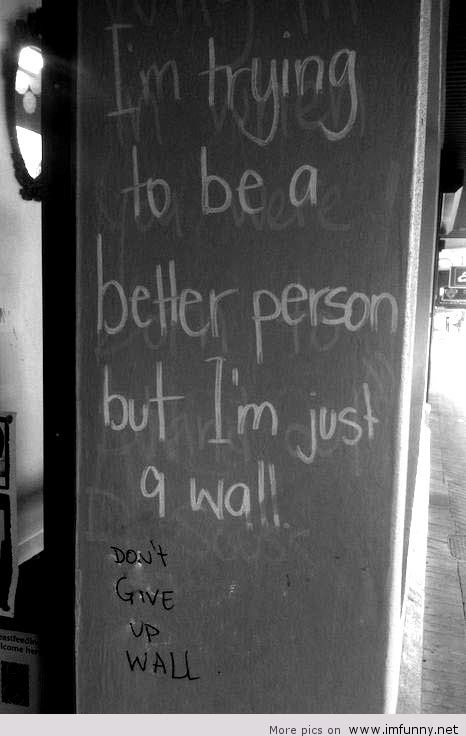 I'm trying
to be a
better person
but I'm just
a wall.
DON'T
GIVE
UP
WALL.
More pics on www.imfunny.net